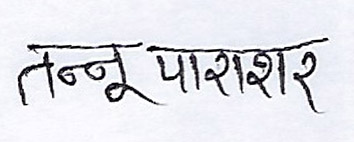 तन्नू पाराशर